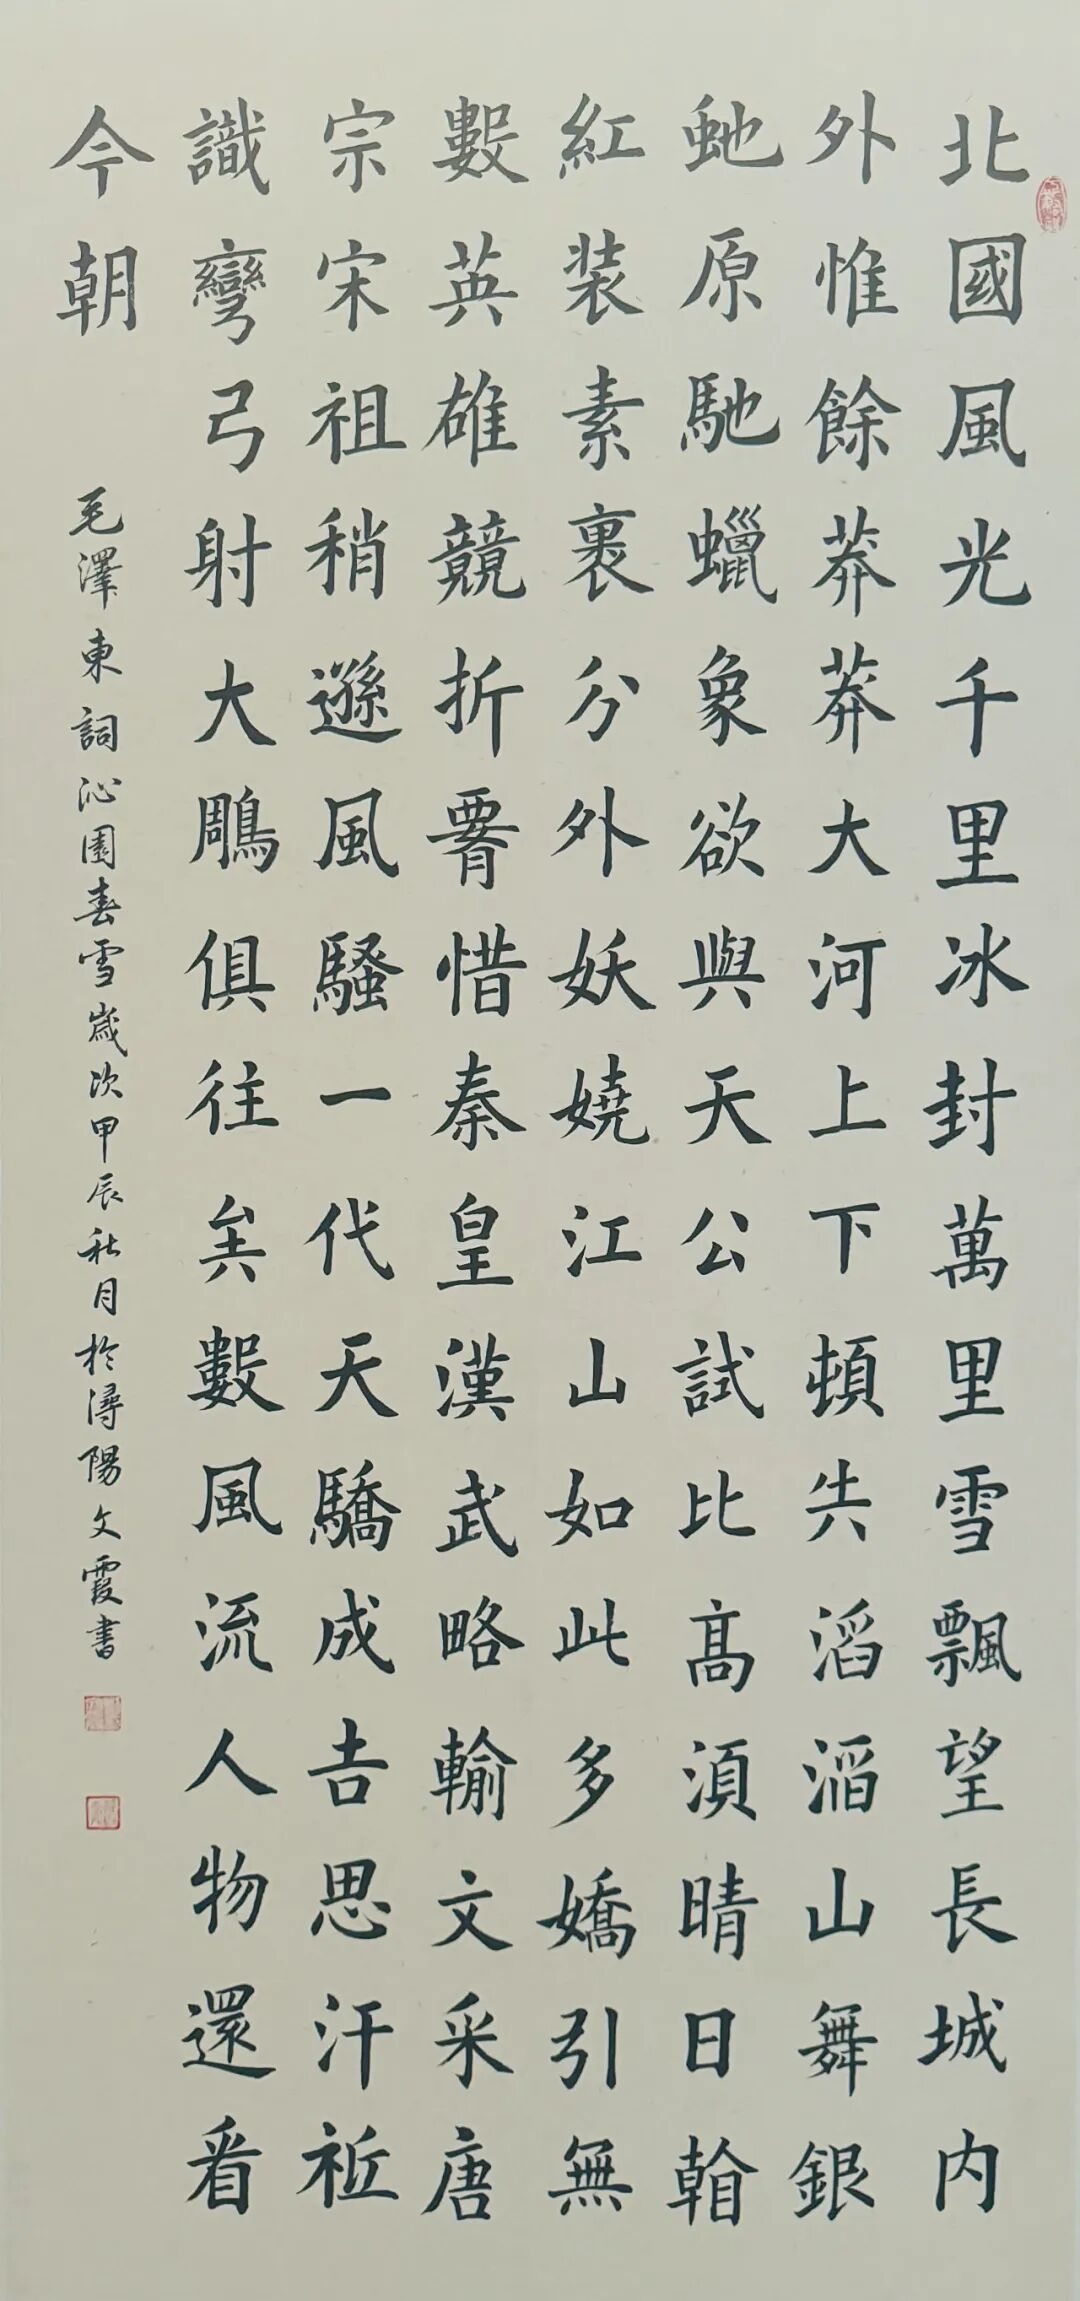 北國風光千里冰封萬里雪飄望長城内
外惟餘莽莽大河上下頓失滔滔山舞銀
虵原馳蠟象欲與天公試比髙湏晴日看
紅装素裹分外妖嬈江山如此多嬌引無
數英雄競折腰惜秦皇漢武略輸文采唐
宗宋祖稍遜風騷一代天驕成吉思汗祗
識彎弓射大鵰俱往矣數風流人物還看
今朝
毛澤東詞沁園春雪歲次甲辰秋月於潯陽文霞書